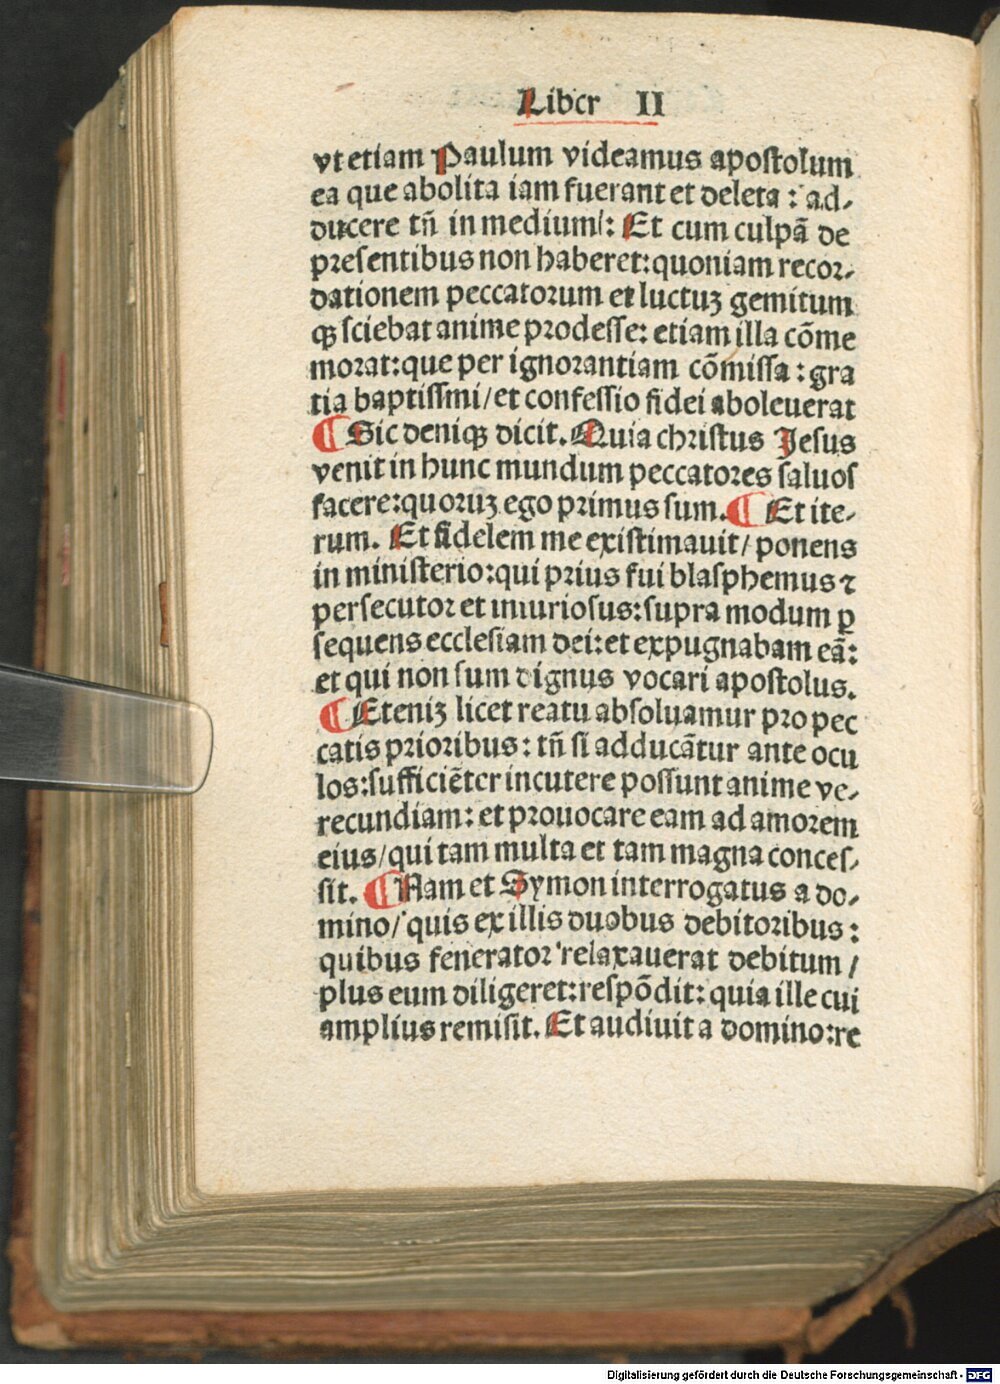 Liber II
vt etiam Paulum videamus apostolum
ea que abolita iam fuerant et deleta : ad-
ducere tñ in medium: Et cum culpã de
presentibus non haberet: quoniam recor-
dationem peccatorum et luctuꝫ gemitum
qꝫ sciebat anime prodesse: etiam illa cõme
morat: que per ignorantiam cõmissa : gra
tia baptissmi / et confessio fidei aboleuerat
¶ Sic deniqꝫ dicit. Quia christus Jesus
venit in hunc mundum peccatores saluos
facere: quoruꝫ ego primus sum. ¶ Et ite-
rum. Et fidelem me existimauit / ponens
in ministerio: qui prius fui blasphemus ⁊
persecutor et iniuriosus: supra modum ꝑ
sequens ecclesiam dei: et expugnabam eã:
et qui non sum dignus vocari apostolus.
¶ Eteniꝫ licet reatu absoluamur pro pec
catis prioribus : tñ si adducãtur ante ocu
los: sufficiẽter incutere possunt anime ve-
recundiam : et prouocare eam ad amorem
eius / qui tam multa et tam magna conces-
sit. ¶ Nam et Symon interrogatus a do-
mino / quis ex illis duobus debitoribus :
quibus fenerator relaxauerat debitum /
plus eum diligeret: respõdit: quia ille cui
amplius remisit. Et audiuit a domino: re
Digitalisierung gefördert durch die Deutsche Forschungsgemeinschaft - DFG